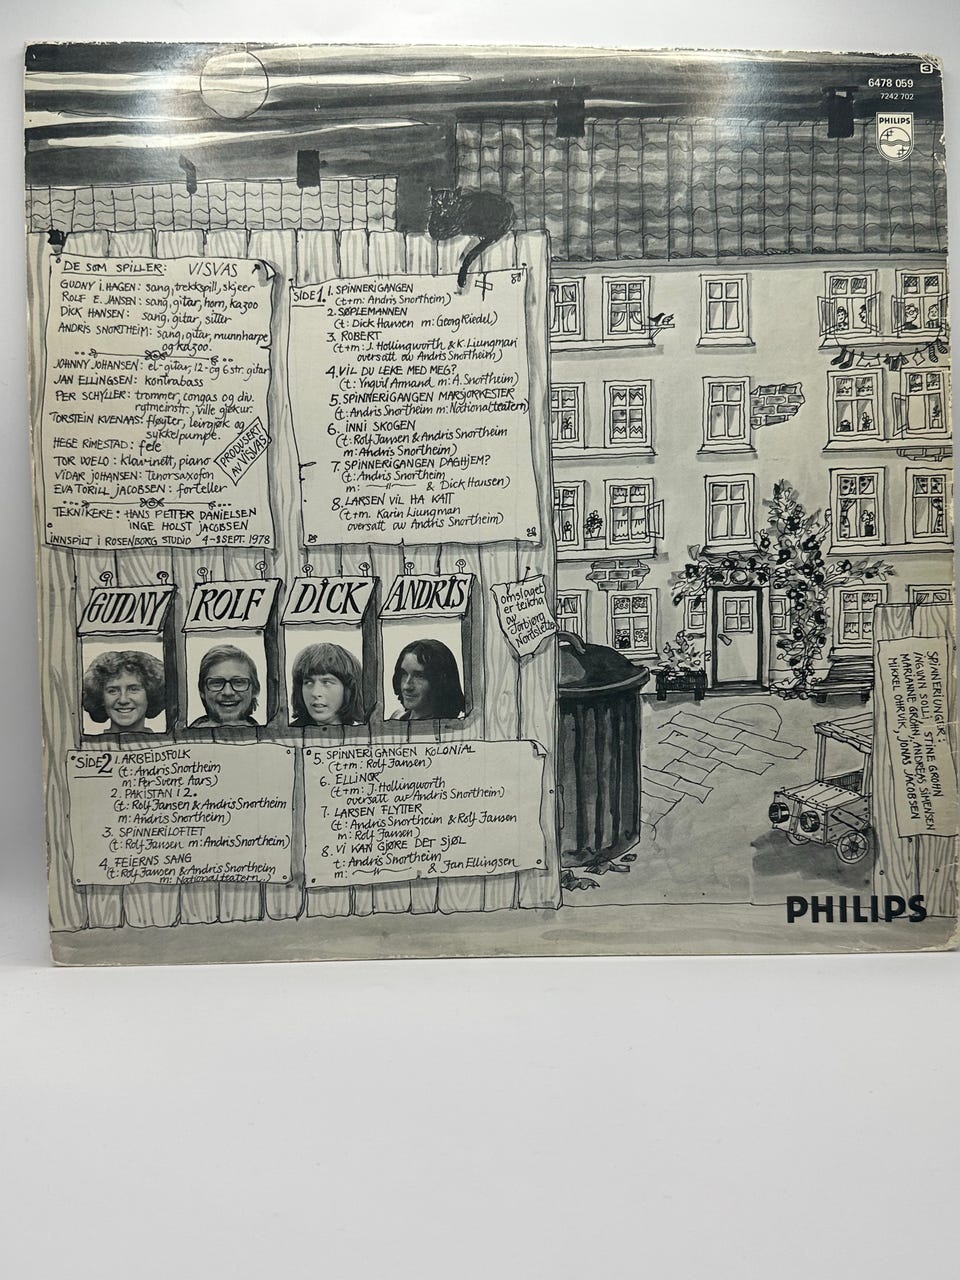 3
6478 059
7242 702
PHILIPS
DE SOM SPILLER: VISVAS
GUDNY I. HAGEN: sang, trekkspill, skjeer
ROLF E. JANSEN: sang, gitar, horn, kazoo
DICK HANSEN: sang, gitar, sitter
ANDRIS SNORTHEIM: sang, gitar, munnharpe
og kazoo.
JOHNNY JOHANSEN: el-gitar, 12- og 6 str. gitar
JAN ELLINGSEN: kontrabass
PER SCHYLLER: trommer, congas og div.
rytmeinstr., ville gjøkur.
TORSTEIN KVENAAS: fløyter, leirgjøk og
sykkelpumpe.
HEGE RIMESTAD: fele
TOR DOELO: klarinett, piano
VIDAR JOHANSEN: tenorsaxofon
EVA TORILL JACOBSEN: forteller
PRODUSERT
AV VISVAS
TEKNIKERE: HANS PETTER DANIELSEN
INGE HOLST JACOBSEN
INNSPILT I ROSENBORG STUDIO 4-8 SEPT. 1978
SIDE 1. 1. SPINNERIGANGEN
(t+m: Andris Snortheim)
2. SØPLEMANNEN
(t: Dick Hansen m: Georg Riedel)
3. ROBERT
(t+m: J. Hollingworth & K. Liungman
oversatt av Andris Snortheim)
4. VIL DU LEKE MED MEG?
(t: Yngvil Armand m: A. Snortheim)
5. SPINNERIGANGEN MARSJORKESTER
(t: Andris Snortheim m: Nationalteatern)
6. INNI SKOGEN
(t: Rolf Jansen & Andris Snortheim
m: Andris Snortheim)
7. SPINNERIGANGEN DAGHJEM?
(t: Andris Snortheim
m: —〃— & Dick Hansen)
8. LARSEN VIL HA KATT
(t+m. Karin Liungman
oversatt av Andris Snortheim)
GUDNY
ROLF
DICK
ANDRIS
omslaget
er teikna
av
Torbjørg
SIDE 2 1. ARBEIDSFOLK
(t: Andris Snortheim
m: Per Sverre Aars)
2. PAKISTAN 12.
(t: Rolf Jansen & Andris Snortheim
m: Andris Snortheim)
3. SPINNERILOFTET
(t: Rolf Jansen m: Andris Snortheim)
4. FEIERNS SANG
(t: Rolf Jansen & Andris Snortheim
m: Nationalteatern.)
5. SPINNERIGANGEN KOLONIAL
(t+m: Rolf Jansen)
6. ELLINOR
(t+m: J. Hollingworth
oversatt av Andris Snortheim)
7. LARSEN FLYTTER
(t: Andris Snortheim & Rolf Jansen
m: Rolf Jansen)
8. VI KAN GJØRE DET SJØL
t: Andris Snortheim
m: —〃— & Jan Ellingsen
SPINNERIUNGER:
INGUNN SOLLI, STINE GROHN
MARIANNE GROHN, ANDREAS SIMENSEN
MIKKEL OHRVIK, JONAS JACOBSEN
PHILIPS